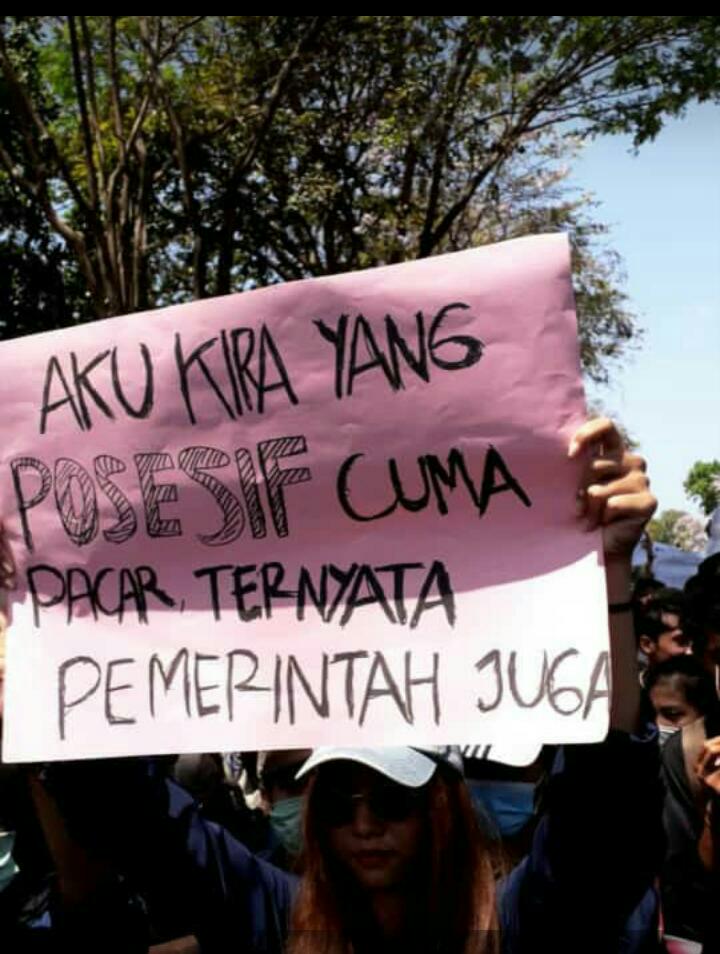 AKU KIRA YANG
POSESIF CUMA
PACAR, TERNYATA
PEMERINTAH JUGA